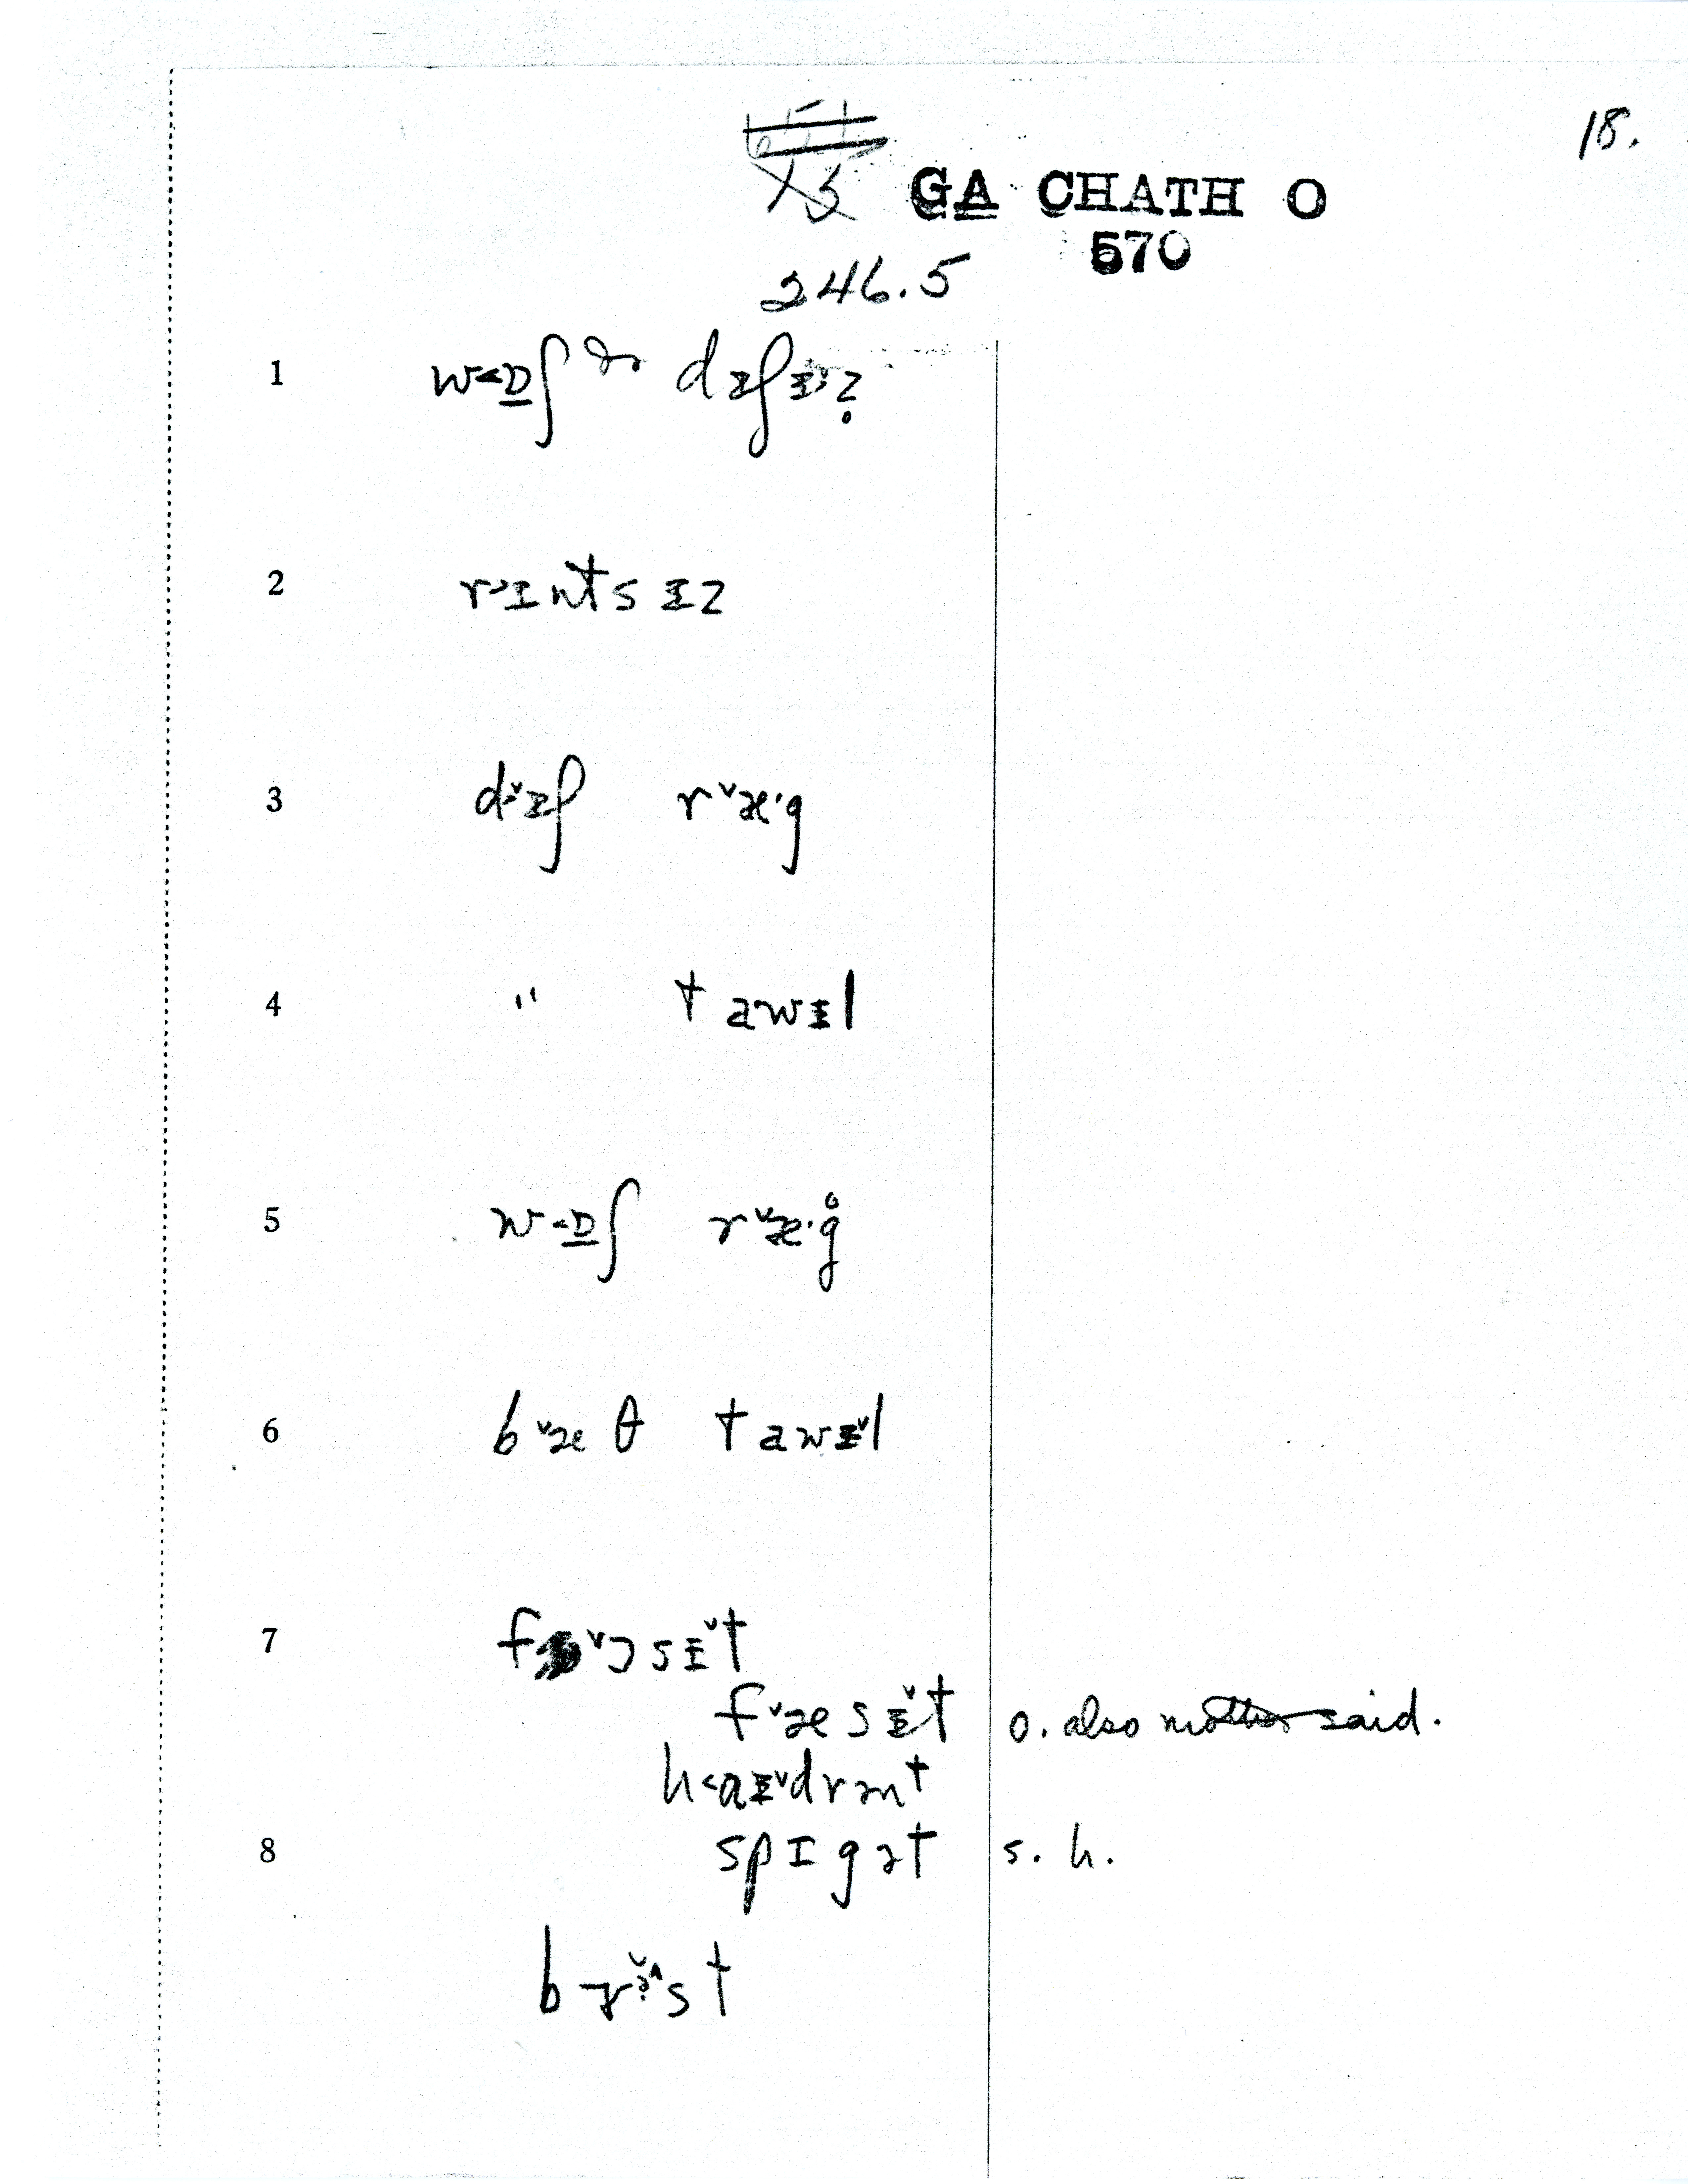 18.
GA CHATH O
570
246.5
1 w<ɒ̲ʃ ðə dɪʃɪ̌z̥
2 r>ɪntsɪz
3 d>̌ɪʃ r˅æ·g
4 " tawɪl
5 w<ɒ̲ʃ r˅æ·g̊
6 b˅æθ tawɪ˅l
7 f˅ɔsɪ˅t
f˅æsɪ̌t o. also mother said.
h<aɪ˅drənt
8 spɪgət s. h.